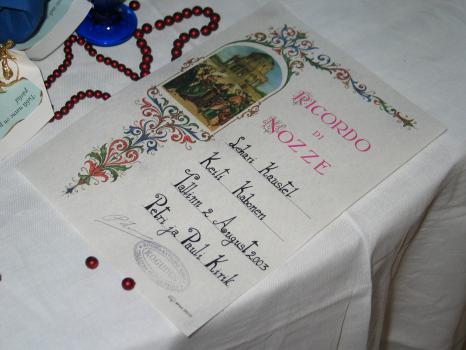 RICORDO
DI
NOZZE
Lehari Kaustel
Keili Kabonen
Tallinn 2 August 2003
Petri ja Pauli Kirik
KOGUDUS